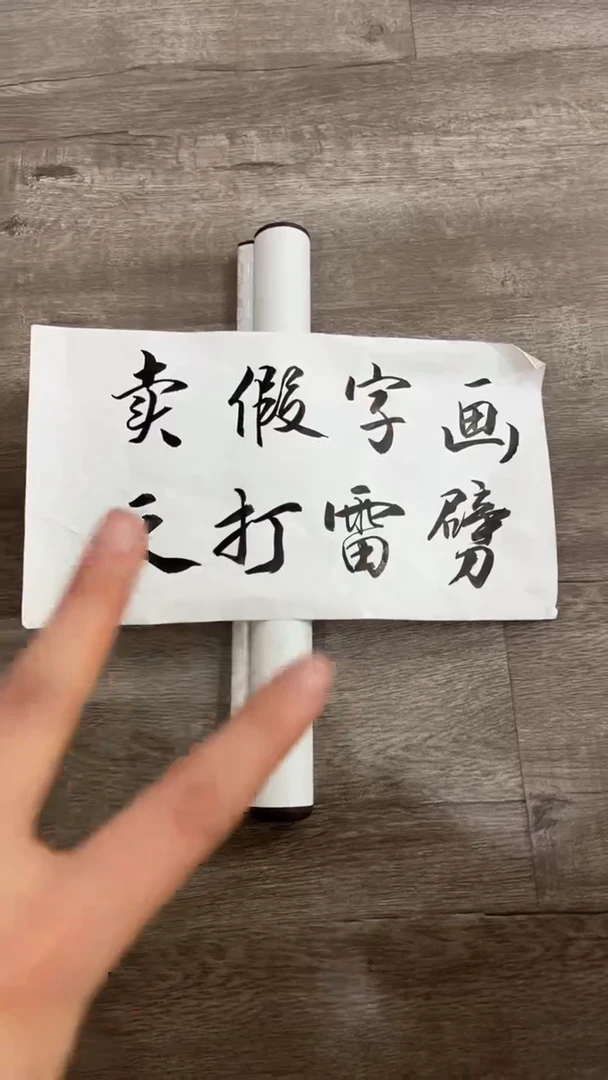 卖假字画
打雷劈